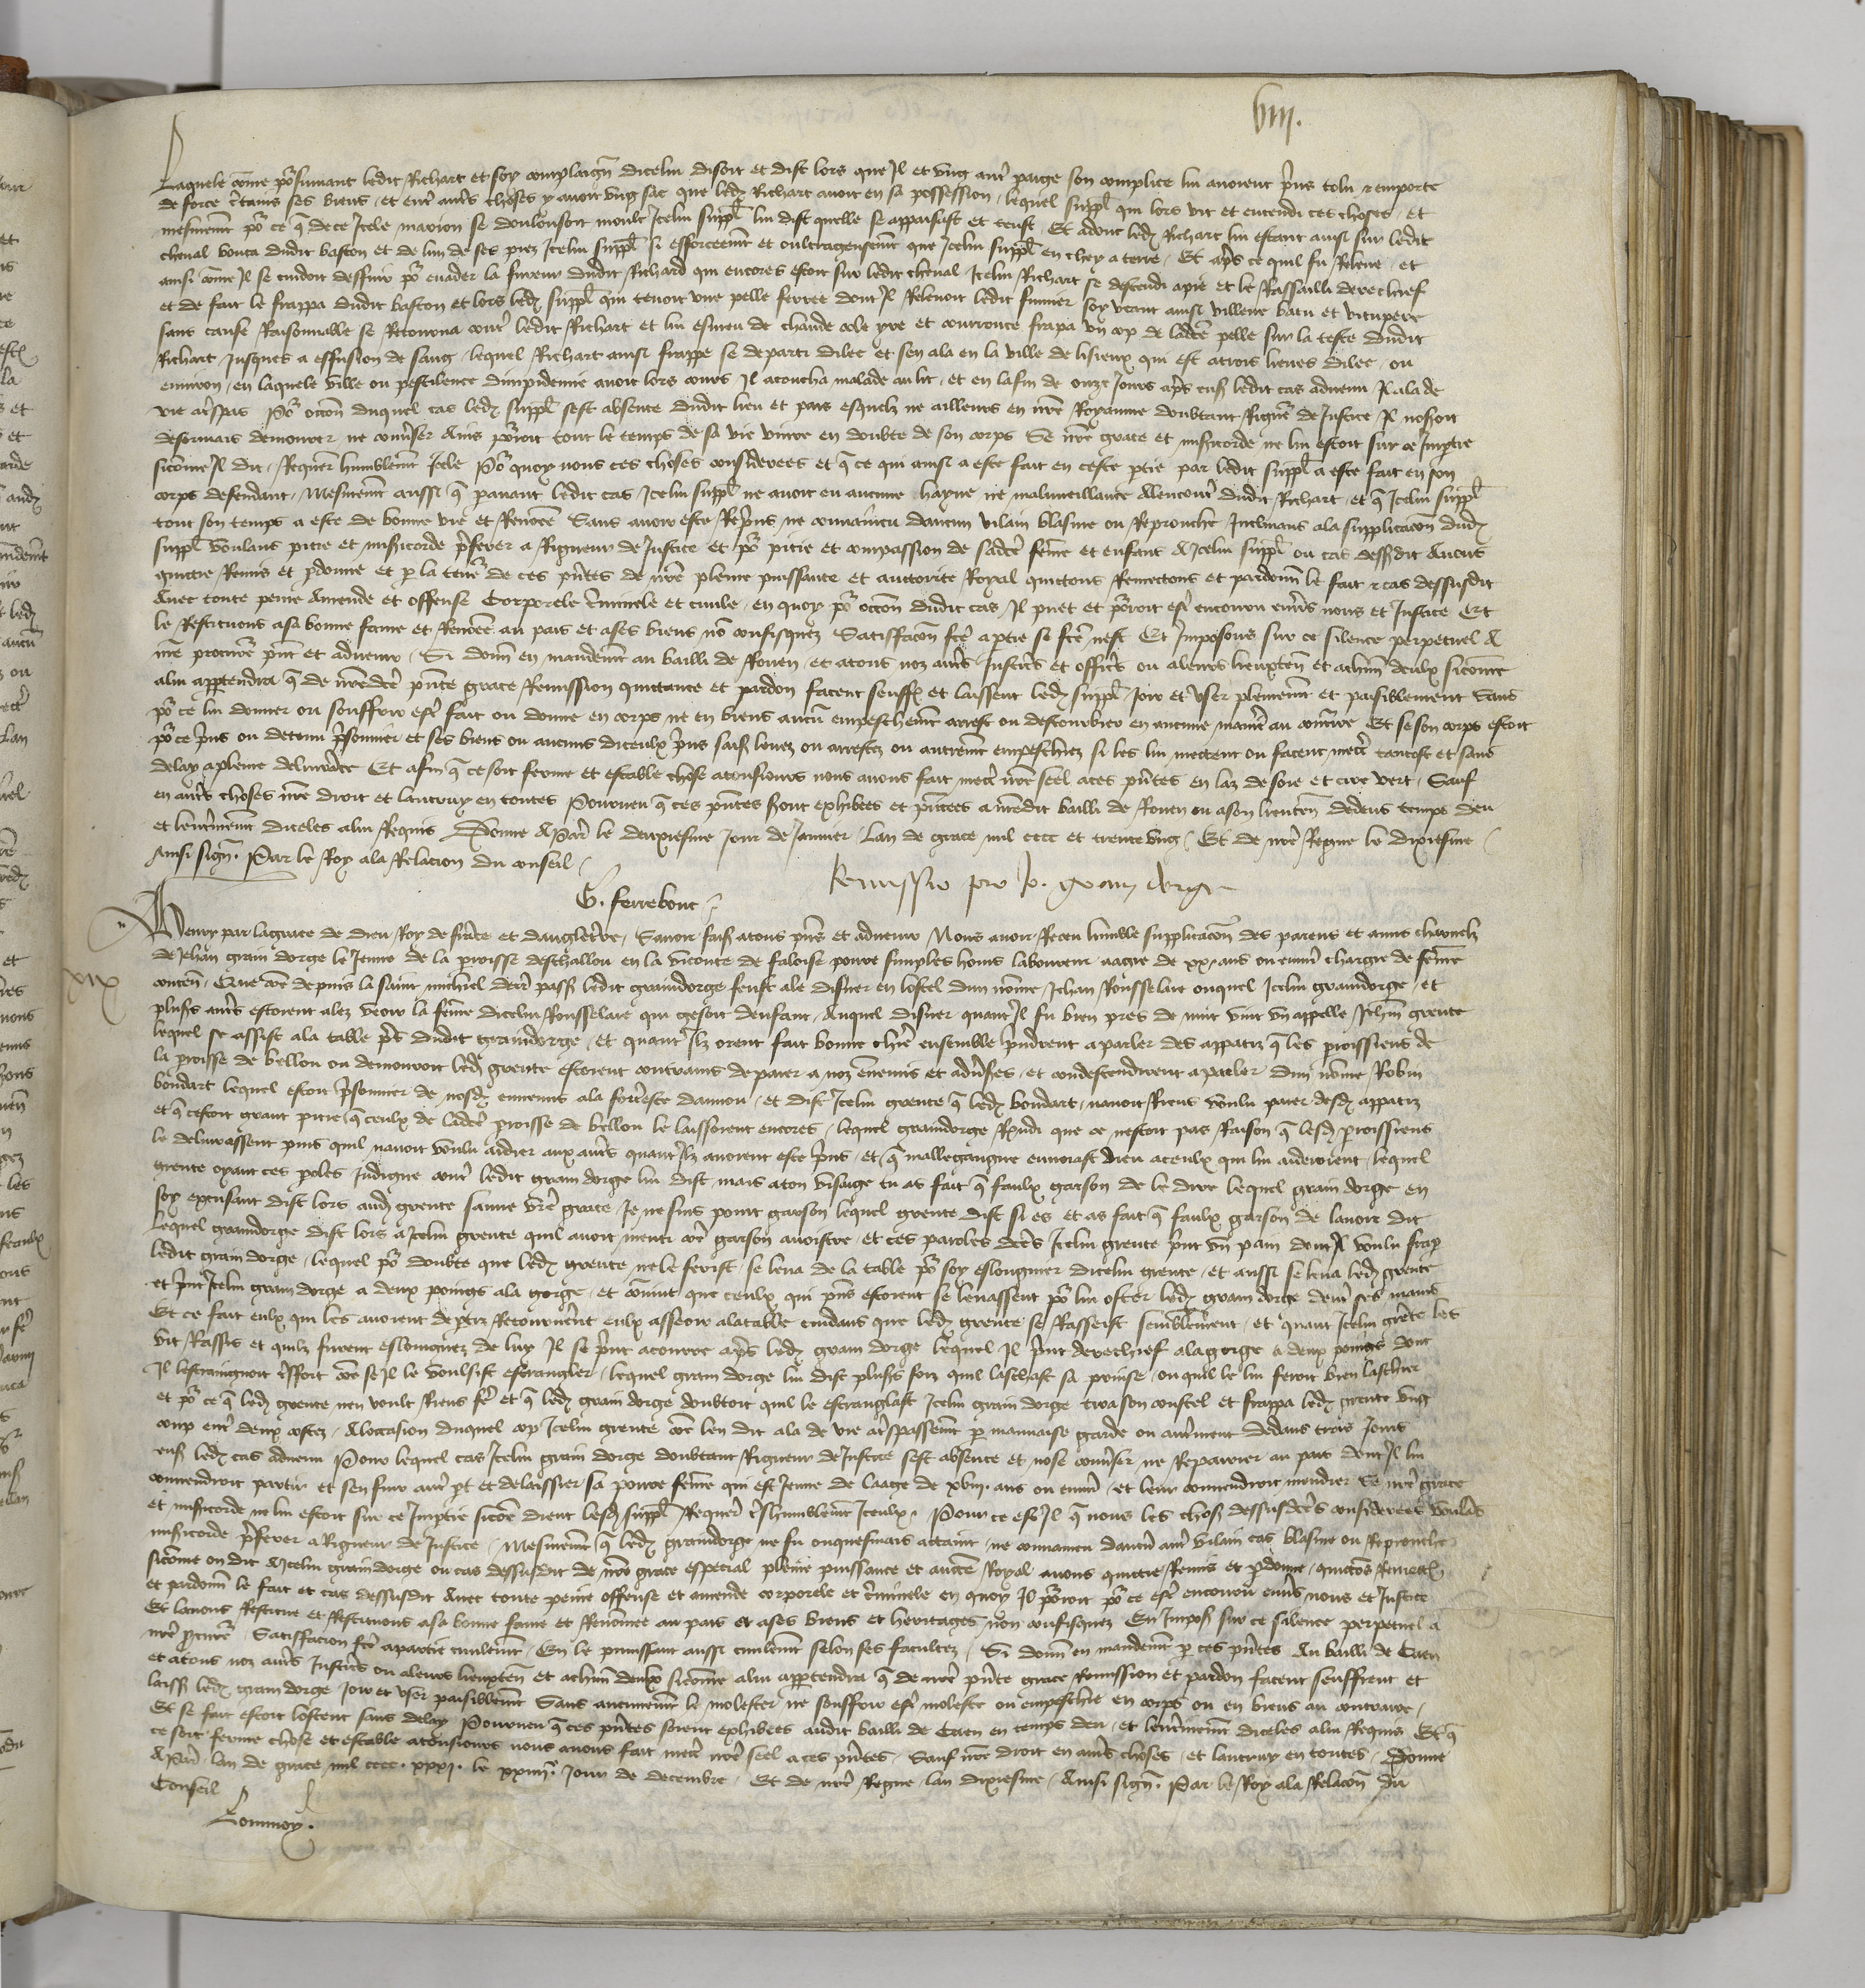 viii.
Laquele co͠me po͠rsuiuant ledit Richart et soy complaign͠ dicelui disoit et dist lors que Il et vng aut͠ paige son complice lui auoient p͠ns tolu et emporte
de force c͠tains ses biens, et ent͠ aut͠s choses y auoit vng sac que led͠ Richart auoit en sa possession, lequel suppl͠ qui lors vit et entendi ces choses, et
mesmem͠t po͠r ce q͠ de ce Icele marion se doulousoit moult Icelui suppl͠ lui dist quelle se appaisast et teust, Et adont led͠ Richart lui estant ainsi sur ledit
cheual bouta dudit baston et de lun de ses piez Icelui suppl͠ si efforceem͠t et oultrageusem͠t que Icelui suppl͠ en chey a terre, Et ap͠s ce quil fu Releue, et
ainsi co͠me Il se cuidoit deffuir po͠r euader la fureur dudit Richard qui encores estoit sur ledit cheual, Icelui Richart se descendi a pie et le Rassailli derechief
et de fait le frappa dudit baston et lors led͠ suppl͠ qui tenoit vne pelle ferree dont Il Releuoit ledit fumier soy veant ainsi villene batu et vitupere
sans cause Raisonnable se Retourna cont͠ ledit Richart et lui esmeu de chaude cole yre et courrouce frapa vn cop de lad͠ce pelle sur la teste dudit
Richart Jusques a effusion de sang, lequel Richart ainsi frappe se departi dilec et sen ala en la ville de lisieux qui est a trois lieues dilec, ou
enuiron, en laquele ville ou pestilence dimpidemie auoit lors cours Il acoucha malade au lit, et en la fin de onze Jours ap͠s ens͠ ledit cas aduenu Il ala de
vie a t͠spas Po͠r occ͠on duquel cas led͠ suppl͠ sest absente dudit lieu et pais esquelz ne ailleurs en n͠re Royaume doubtant Rigue͠r de Justice Il noseroit
desormais demourer ne conu͠ser Ains po͠rroit tout le temps de sa vie viure en doubte de son corps Se n͠re grace et mis͠icorde ne lui estoit sur ce Imp͠tie
sico͠me Il dit, Requer͠ humblem͠t Icele Po͠r quoy nous ces choses considerees et q͠ ce qui ainsi a este fait en ceste p͠tie par ledit suppl͠ a este fait en son
corps defendant, Mesmem͠t aussi q͠ parauant ledit cas Icelui suppl͠ ne auoit eu aucune hayne ne malueillance allencont͠ dudit Richart, et q͠ Icelui suppl͠
tout son temps a este de bonne vie et Reno͠mee Sans auoir este Rep͠ns ne conuaincu daucun vilain blasme ou Reprouche Inclinans a la supplicac͠on dud͠
suppl͠ voulans pitie et mis͠icorde p͠ferer a Rigueur de Justice et po͠r pitie et compassion de sad͠ce fe͠me et enfans A Icelui suppl͠ ou cas dess͠dit Auons
quittie Remis et p͠donne et p͠ la tene͠r de ces p͠ntes de n͠re pleine puissance et auctorite Royal quictons Remectons et pardonn͠ le fait et cas dessusdit
Auec toute peine Amende et offense Corporele c͠minele et ciuile, en quoy po͠r occ͠on dudit cas, Il puet et po͠rroit est͠ encouru enu͠s nous et Justice Et
le Restituons a sa bonne fame et Reno͠mee au pais et a ses biens no͠ confisquez Satisfac͠on f͠cte a p͠tie se f͠cte nest Et Imposons sur ce silence perpetuel A
n͠re procure͠r p͠nt et aduenir, Si donn͠ en mandem͠t au bailli de Rouen, et a tous noz aut͠s Justic͠s et offic͠s ou a leurs lieuxten͠ et achun͠ deulx sico͠me
a lui app͠rtendra q͠ de n͠redc͠e p͠nte grace Remission quittance et pardon facent seuff͠ et laissent led͠ suppl͠ Joir et vser plenem͠t et paisiblement Sans
po͠r ce lui donner ou souffrir est͠ fait ou donne en corps ne en biens aucu͠ empeschem͠t arrest ou destourbier en aucune manie͠r au cont͠re Et se son corps estoit
po͠r ce p͠ns ou detenu p͠sonnier et ses biens ou aucuns diceulx p͠ns sais͠ leuez ou arrestez ou autrem͠t empeschiez si les lui mettent ou facent mect͠ tantost et sans
delay a pleine deliurance Et afin q͠ ce soit ferme et estable chose a tousiours nous auons fait mect͠ n͠re seel a ces p͠ntes en laz de soie et cire vert, Sauf
en aut͠s choses n͠re droit et lautruy en toutes Pourueu q͠ ces p͠ntes seront exhibees et p͠ntees a n͠redit bailli de Rouen ou a son lieuten͠ dedens temps deu
et lent͠inem͠t diceles a lui Requis Donne A Par͠ le deuxiesme Jour de Januier, Lan de grace mil cccc et trente vng, Et de n͠re Regne le dixiesme
Ainsi sign͠. Par le Roy a la Relacion du conseil
G. ferrebouc
Remissio pro Jo. grain dorge
xix
Henry par la grace de dieu Roy de fra͠ce et dangleterre, Sauoir fais͠ a tous p͠ns et aduenir Nous auoir Receu humble supplicac͠on des parens et amis charnelz
de Jehan grain dorge le Jeune de la p͠roisse deschallou en la viconte de faloise poure simples homs laboureur aagie de xx. ans ou enui͠r chargie de fe͠me
conten͠, Que co͠me depuis la saint michiel derr͠ pass͠ ledit graindorge feust ale disner en lostel dun no͠me Jehan Rousselare ouquel Icelui graindorge, et
plus͠s aut͠s estoient alez veoir la fe͠me dicelui Rousselare qui gesoit denfant, Auquel disner quant Il fu bien pres de nuit vint vn appelle Jeh͠n grente
lequel se assist a la table p͠s dudit graindorge, et quant Ilz orent fait bonne chie͠r ensemble p͠ndrent a parler des appatiz q͠ les p͠roissiens de
la p͠roisse de bellou ou demouroit led͠ grente estoient contrains de paier a noz ennemis et adu͠s͠es, et condescendirent a parler dun no͠me Robin
boudart lequel estoit p͠sonnier de nosd͠ ennemis a la fort͠esse dannou, et dist Icelui grente q͠ led͠ boudart, nauoit Riens voulu paier desd͠ appatiz
et q͠ cestoit grant pitie q͠ ceulx de lad͠ce p͠roisse de bellou le laissoient encores, lequel graindorge R͠ndi que ce nestoit pas Raison q͠ lesd͠ p͠roissiens
le deliurassent puis quil nauoit voulu aidier aux aut͠s quant Ilz auoient este p͠ns, et q͠ mallegaigne enuoiast dieu a ceulx qui lui aideroient, lequel
grente oyant ces p͠oles Indigne cont͠ ledit grain dorge lui dist mais a ton visaige tu as fait q͠ faulx garson de le dire lequel grain dorge en
soy excusant dist lors aud͠ grente sauue v͠re grace, Je ne suis point garson lequel grente dist si es et as fait q͠ faulx garson de lauoir dit
Lequel graindorge dist lors a Icelui grente quil auoit menti co͠me garson auoistre, et ces paroles d͠ces Icelui grente p͠nt vn pain dont Il voulu frap͠
ledit grain dorge, lequel po͠r doubte que led͠ grente ne le ferist, se leua de la table po͠r soy eslongnier dicelui grente, et aussi se leua led͠ grente
et p͠nt Icelui grain dorge a deux poings a la gorge, et co͠uint que ceulx qui p͠ns estoient se leuassent po͠r lui oster led͠ grain dorge dent͠ ses mains
Et ce fait eulx qui les auoient dep͠tiz Retourne͠rent eulx asseoir a la table cuidans que led͠ grente se Rasseist semblablement, et quant Icelui grente les
vit Rassis et quilz furent eslongnez de luy Il se p͠nt a courre ap͠s led͠ grain dorge lequel Il p͠nt derechief a la gorge a deux poings dont
Il lestraingnoit t͠sfort co͠me se Il le voulsist estrangler, lequel grain dorge lui dist plus͠s foiz quil laschast sa prinse, ou quil le lui feroit bien laschier
et po͠r ce q͠ led͠ grente, nen voult Riens f͠e et q͠ led͠ grain dorge doubtoit quil le estranglast Icelui grain dorge tira son coustel et frappa led͠ grente vng
coup ent͠ deux costez, A loccasion duquel cop Icelui grente co͠me len dit ala de vie a t͠spassem͠t p͠ mauuaise garde ou aut͠ment dedans trois Jours
ens͠ led͠ cas aduenu Pour lequel cas Icelui grain dorge doubtant Rigueur de Justice sest absente et nose conu͠ser ne Reparier au pais dont Il lui
conuendroit partir et sen fuir aut͠ p͠t et delaissier sa poure fe͠me qui est Jeune de laage de xviii. ans ou enui͠r, et leur conuendroit mendier Se n͠re grace
et mis͠icorde ne lui estoit sur ce Imp͠tie sico͠me dient lesd͠ suppl͠ Requer͠ t͠shumblem͠t Iceulx, Pour ce est Il q͠ nous les chos͠ dessusd͠ces considerees voula͠s
mis͠icorde p͠ferer a Rigueur de Justice, Mesmem͠t q͠ led͠ graindorge ne fu onquesmais attaint, ne conuaincu daucu͠ aut͠ vilain cas blasme ou Reprouche
sico͠me on dit A Icelui graindorge ou cas dessusdit de n͠re grace especial pleine puissance et auct͠e Royal auons quictie Remis et p͠donne, quicto͠s Remect͠
et pardonn͠ le fait et cas dessusdit Auec toute peine offense et amende corporele et c͠minele en quoy Il po͠rroit po͠r ce est͠ encouru enu͠s nous et Justice
Et lauons Restitue et Restituons a sa bonne fame et Reno͠mee au pais et a ses biens et heritages non confisquez En Impos͠ sur ce silence perpetuel a
n͠re p͠cure͠r, Satisfacion f͠cte a partie ciuilem͠t, En le punissant aussi ciuilem͠t selon ses facultez, Si donn͠ en mandem͠t p͠ ces p͠ntes Au bailli de Caen
et a tous noz aut͠s Justic͠s ou a leurs lieuxten͠ et achun͠ deulx sico͠me a lui app͠rtendra q͠ de n͠re p͠nte grace Remission et pardon facent seuffrent et
laiss͠ led͠ grain dorge Joir et vser paisiblem͠t Sans aucunem͠t le molester ne souffrir est͠ moleste ou empeschie en corps ou en biens au contraire,
Et se fait estoit lostent sans delay Pourueu q͠ ces p͠ntes soient exhibees audit bailli de Caen en temps deu, et lent͠inem͠t diceles a lui Requis Et q͠
ce soit ferme chose et estable a tousiours nous auons fait mect͠ n͠re seel a ces p͠ntes, Sauf n͠re droit en aut͠s choses, et lautruy en toutes, Donne
A Par͠ lan de grace mil cccc. xxxj. le xxiiii͠. Jour de decembre, Et de n͠re Regne lan dixiesme, Ainsi sign͠. Par le Roy a la Relac͠on du
Conseil
Lommoy.